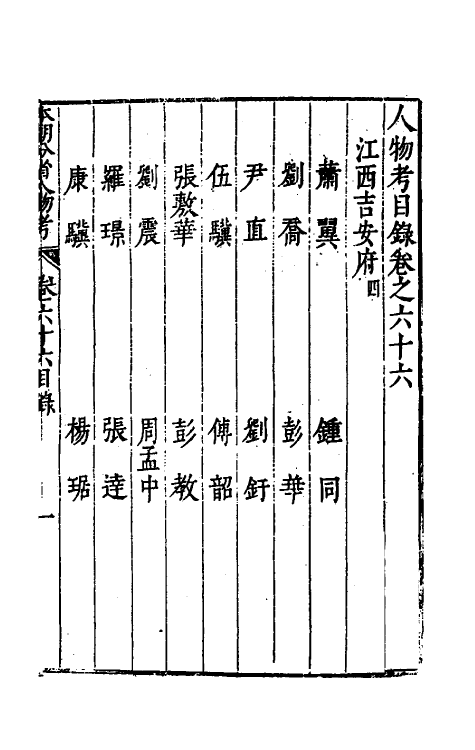 人物考目錄卷之六十六
江西吉安府四
蕭翼 鍾同
劉喬 彭華
尹直 劉釪
伍驥 傅韶
張敷華 彭教
劉震 周孟中
羅璟 張達
康驥 楊琚
本朝分省人物考 卷六十六目錄 一